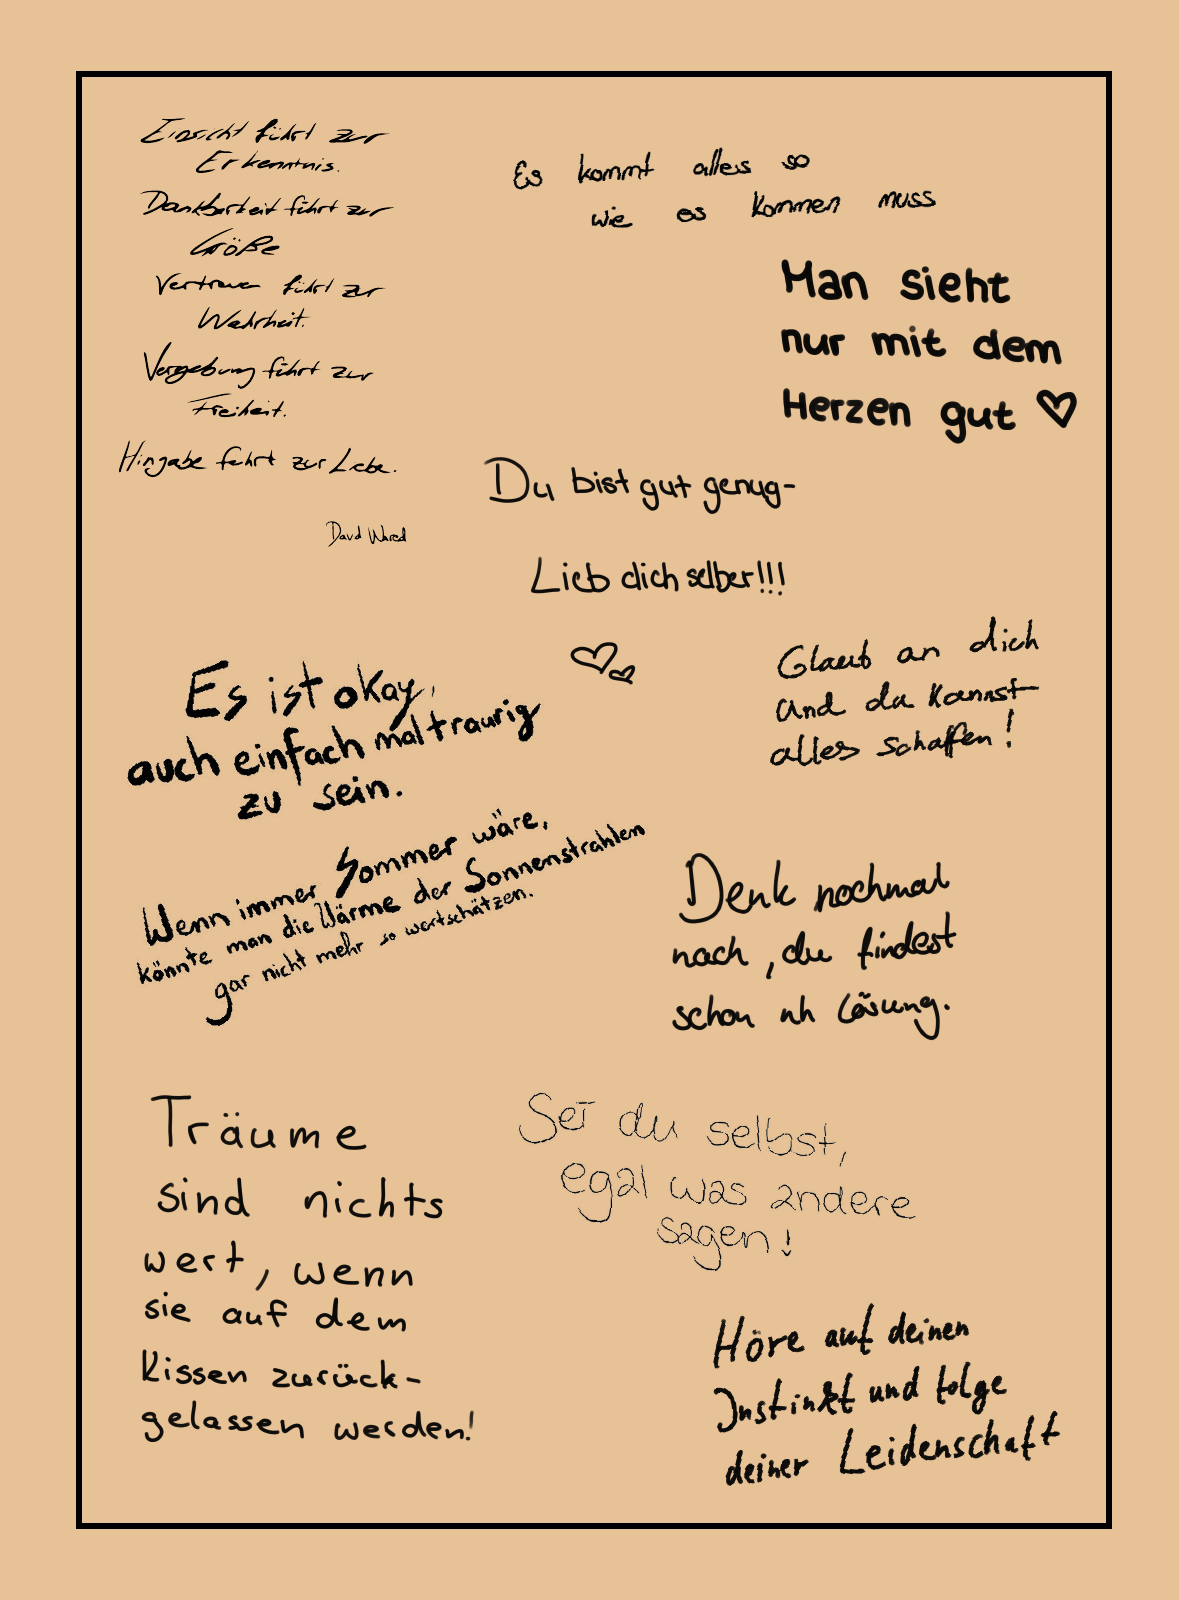 Einsicht führt zur
Erkenntnis.
Dankbarkeit führt zur
Größe
Vertrauen führt zur
Wahrheit.
Vergebung führt zur
Freiheit.
Hingabe führt zur Liebe.
David
Es kommt alles so
wie es kommen muss
Man sieht
nur mit dem
Herzen gut
Du bist gut genug-
Lieb dich selber!!!
Es ist okay,
auch einfach mal traurig
zu sein.
Glaub an dich
und du kannst
alles schaffen!
Wenn immer Sommer wäre,
könnte man die Wärme der Sonnenstrahlen
gar nicht mehr so wertschätzen.
Denk nochmal
nach, du findest
schon nh Lösung.
Träume
sind nichts
wert, wenn
sie auf dem
Kissen zurück-
gelassen werden!
Sei du selbst,
egal was andere
sagen!
Höre auf deinen
Instinkt und folge
deiner Leidenschaft